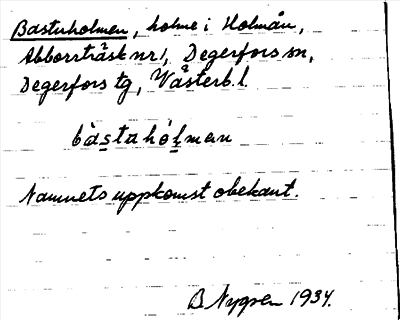 Bastuholmen, holme i Holmån,
Abborrträsk nr 1, Degerfors sn,
Degerfors tg, Västerb. l.
bàstahòlman
Namnets uppkomst obekant.
B. Nygren 1934.